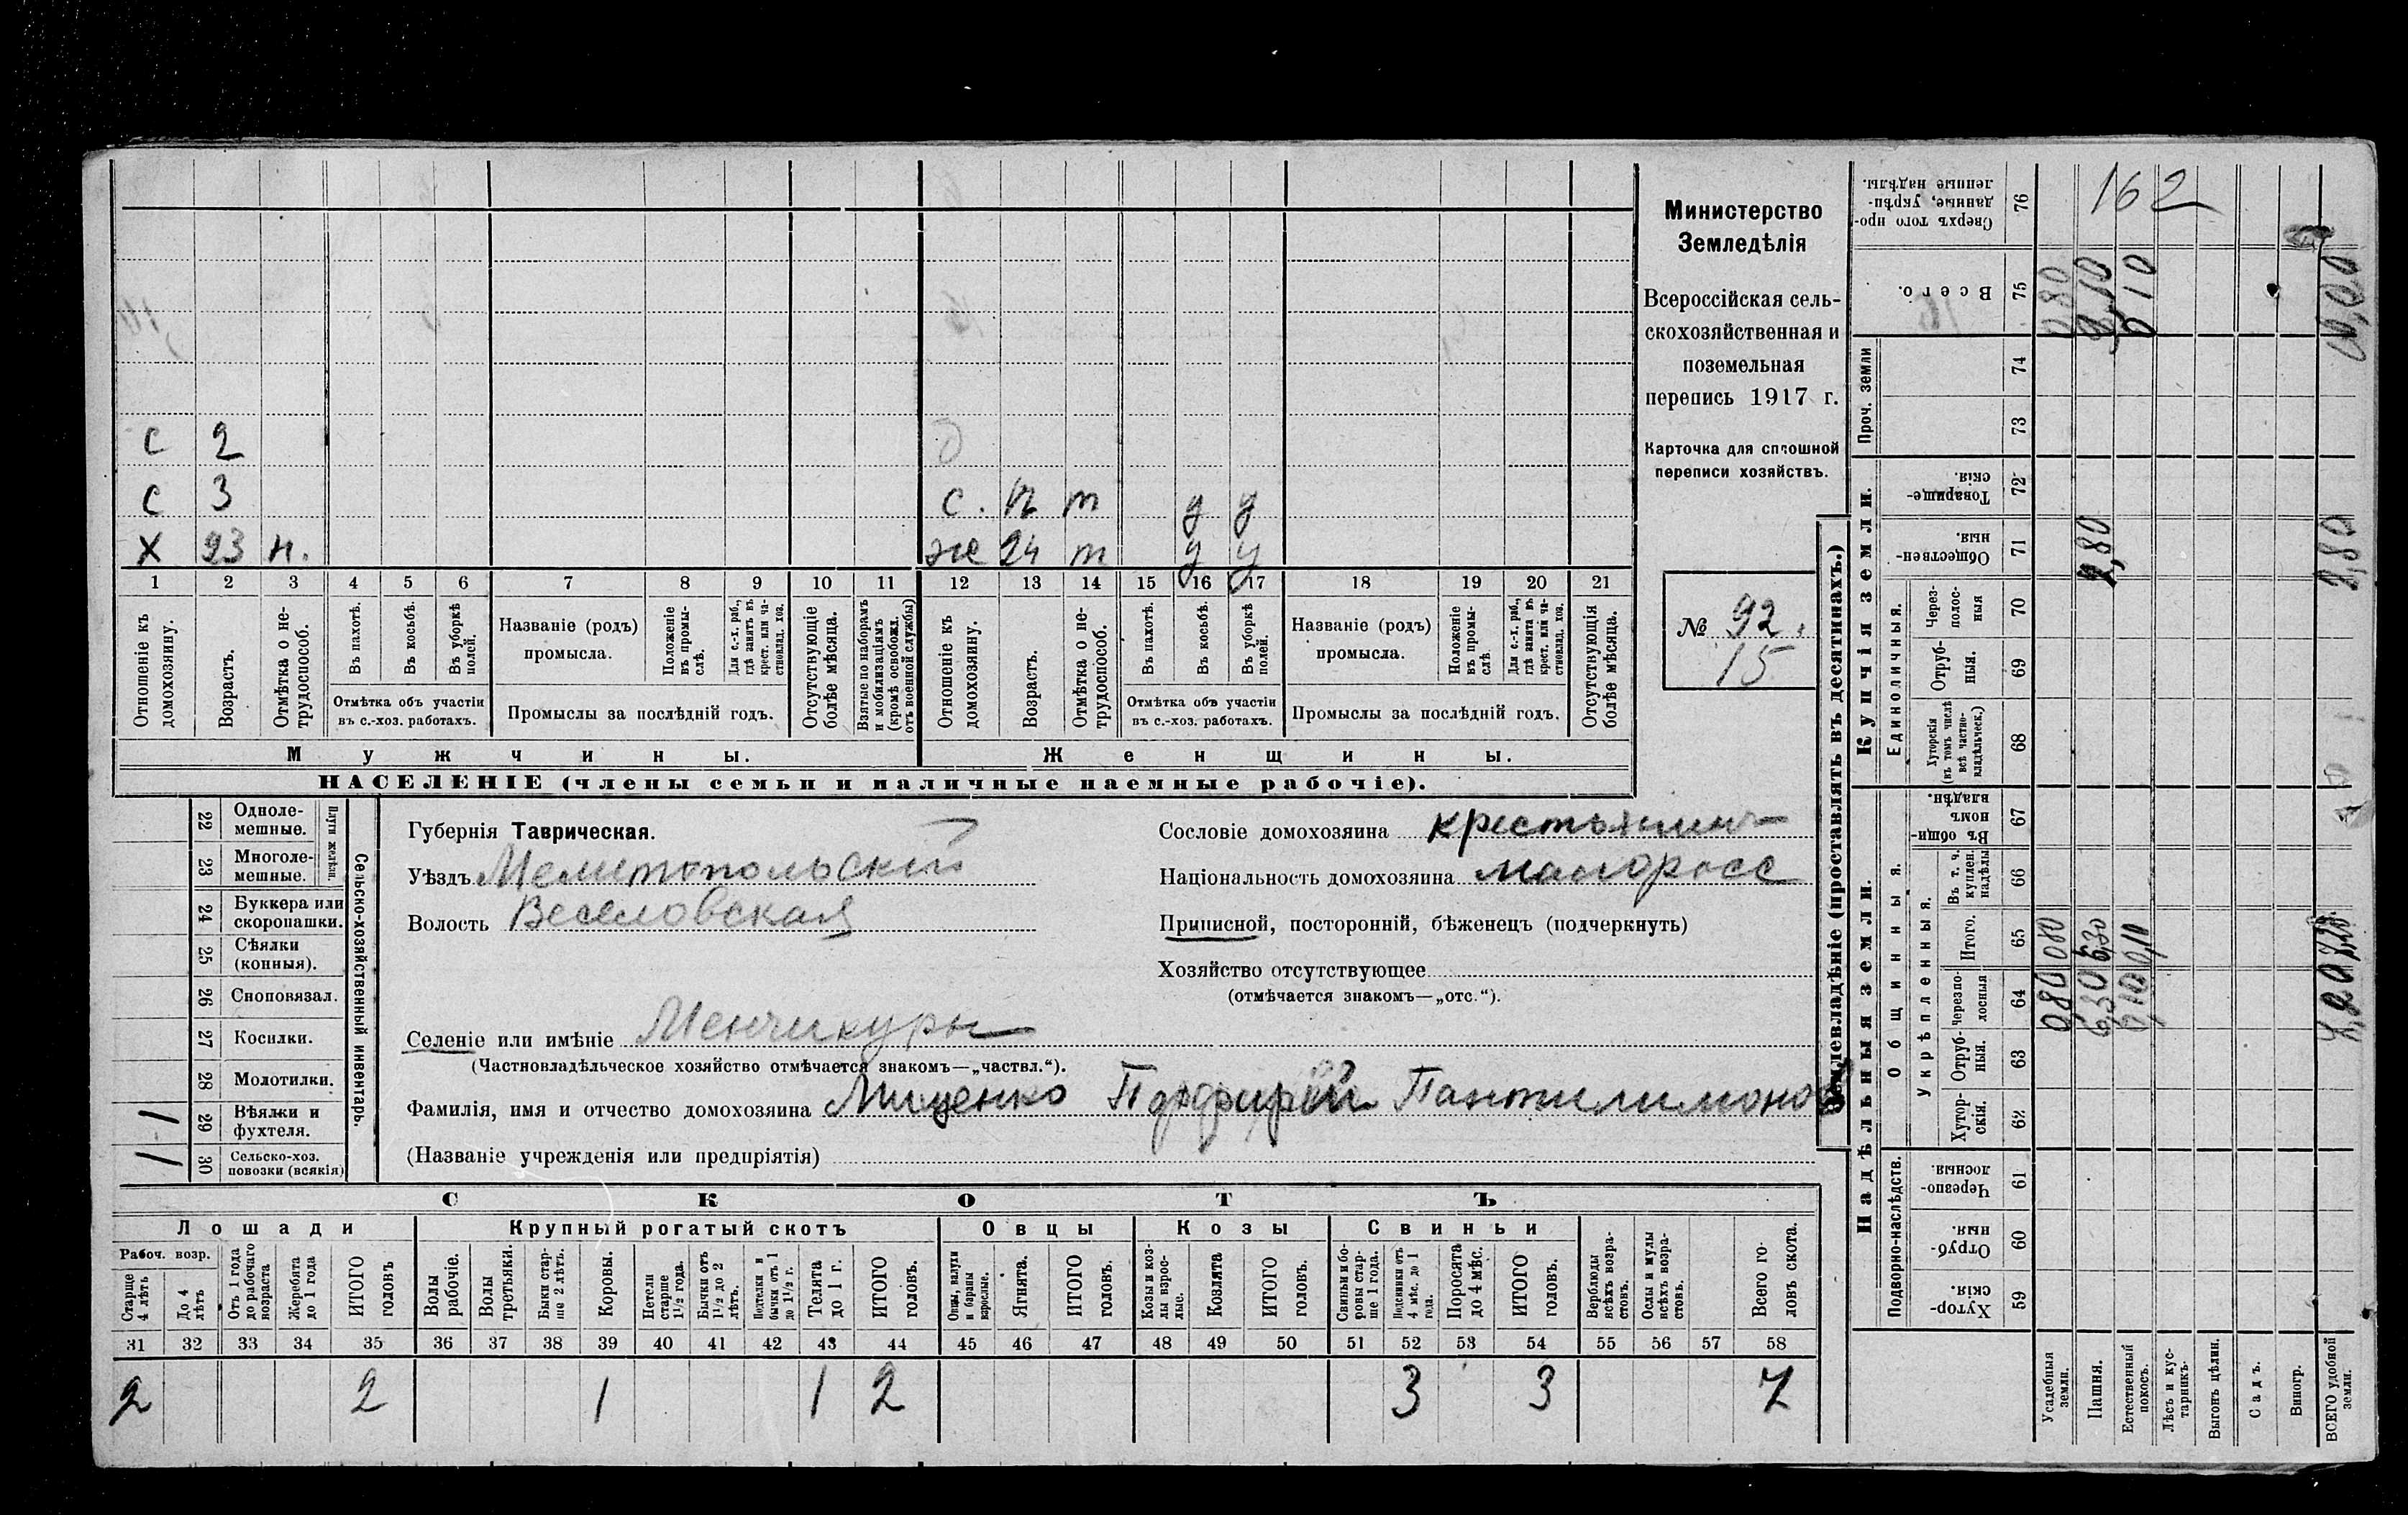 с 2
с 3 с. 12 т у у
х 23 н. же 24 т у у
1 2 3 4 5 6 7 8 9 10 11 12 13 14 15 16 17 18 19 20 21
Отношеніе къ домохозяину.
Возрастъ.
Отмѣтка о не-
трудоспособ.
Въ пахотѣ.
Въ косьбѣ.
Въ уборкѣ полей.
Отмѣтка объ участіи
въ с.-хоз. работахъ.
Названіе (родъ)
промысла.
Положеніе въ промы-
слѣ.
Для с.-х. раб., гдѣ занятъ въ крест. или ча-
стновлад. хоз.
Промыслы за послѣдній годъ.
Отсутствующіе болѣе мѣсяца.
Взятые по наборамъ и мобилизаціямъ (кромѣ освобожд. отъ военной службы)
Отношеніе къ домохозяину.
Возрастъ.
Отмѣтка о не-
трудоспособ.
Въ пахотѣ.
Въ косьбѣ.
Въ уборкѣ полей.
Отмѣтка объ участіи
въ с.-хоз. работахъ.
Названіе (родъ)
промысла.
Положеніе въ промы-
слѣ.
Для с.-х. раб., гдѣ занята въ крест. или ча-
стновлад. хоз.
Промыслы за послѣдній годъ.
Отсутствующія болѣе мѣсяца.
Мужчины.
Женщины.
НАСЕЛЕНІЕ (члены семьи и наличные наемные рабочіе).
Министерство
Земледѣлія
Всероссійская сель-
скохозяйственная и
поземельная
перепись 1917 г.
Карточка для сплошной
переписи хозяйствъ.
№ 92.
15
Сельско-хозяйственный инвентарь.
Плуги желѣзн.
22 Одноле-
мешные.
23 Многоле-
мешные.
24 Буккера или
скоропашки.
25 Сѣялки
(конныя).
26 Сноповязал.
27 Косилки.
28 Молотилки.
1 29 Вѣялки и
фухтеля.
1 30 Сельско-хоз.
повозки (всякія)
Губернія Таврическая.
Уѣздъ Мелитопольскій
Волость Веселовская
Селеніе или имѣніе Менчикуры
(Частновладѣльческое хозяйство отмѣчается знакомъ—„частвл.“).
Фамилія, имя и отчество домохозяина Мищенко Порфирій Пантилимонов
(Названіе учрежденія или предпріятія)
Сословіе домохозяина крестьянин
Національность домохозяина малоросс
Приписной, посторонній, бѣженецъ (подчеркнуть)
Хозяйство отсутствующее
(отмѣчается знакомъ—„отс.“).
СКОТЪ
Лошади
Крупный рогатый скотъ
Овцы
Козы
Свиньи
Рабоч. возр.
Старше 4 лѣтъ
До 4 лѣтъ
Отъ 1 года до рабочаго возраста
Жеребята до 1 года
ИТОГО головъ
Волы рабочіе.
Волы третьяки.
Быки стар-
ше 2 лѣтъ.
Коровы.
Нетели старше 1½ года.
Бычки отъ 1½ до 2 лѣтъ.
Подтелки и бычки отъ 1 до 1½ г.
Телята до 1 г.
ИТОГО головъ.
Овцы, валухи и бараны взрослые.
Ягнята.
ИТОГО головъ.
Козы и коз-
лы взрос-
лые.
Козлята
ИТОГО головъ.
Свиньи и бо-
ровы стар-
ше 1 года.
Подсвинки отъ 4 мѣс. до 1 года.
Поросята до 4 мѣс.
ИТОГО головъ.
Верблюды всѣхъ возра-
стовъ.
Ослы и мулы всѣхъ возра-
стовъ.
Всего го-
ловъ скота.
31 32 33 34 35 36 37 38 39 40 41 42 43 44 45 46 47 48 49 50 51 52 53 54 55 56 57 58
2 2 1 1 2 3 3 7
Землевладѣніе (проставлять въ десятинахъ.)
Надѣльныя земли.
Купчія земли.
Проч. земли
Подворно-наслѣдств.
Общинныя.
Укрѣпленныя.
Единоличныя.
Сверхъ того про-
данные, укрѣп-
ленные надѣлы. 76 162
Всего. 75 0,80
74
73
Товарище-
скія 72
Обществен-
ныя. 71 2,80 2,80
Через-
полос-
ныя 70
Отруб-
ныя. 69
Хуторскія (въ томъ числѣ всѣ частно-
владѣльческ.) 68
Въ общи-
номъ владѣн. 67
Въ т. ч. куплен. надѣлы 66
Итого. 65 0,80 6,30 0,10
Черезпо-
лосныя 64 0,80 6,30 0,10
Отруб-
ныя. 63
Хутор-
скія. 62
Черезпо-
лосныя. 61
Отруб-
ныя. 60
Хутор-
скія. 59
Усадебныя земли.
Пашня.
Естественный покосъ.
Лѣсъ и кус-
тарникъ.
Выгонъ цѣлин.
Садъ.
Виногр.
ВСЕГО удобной земли.